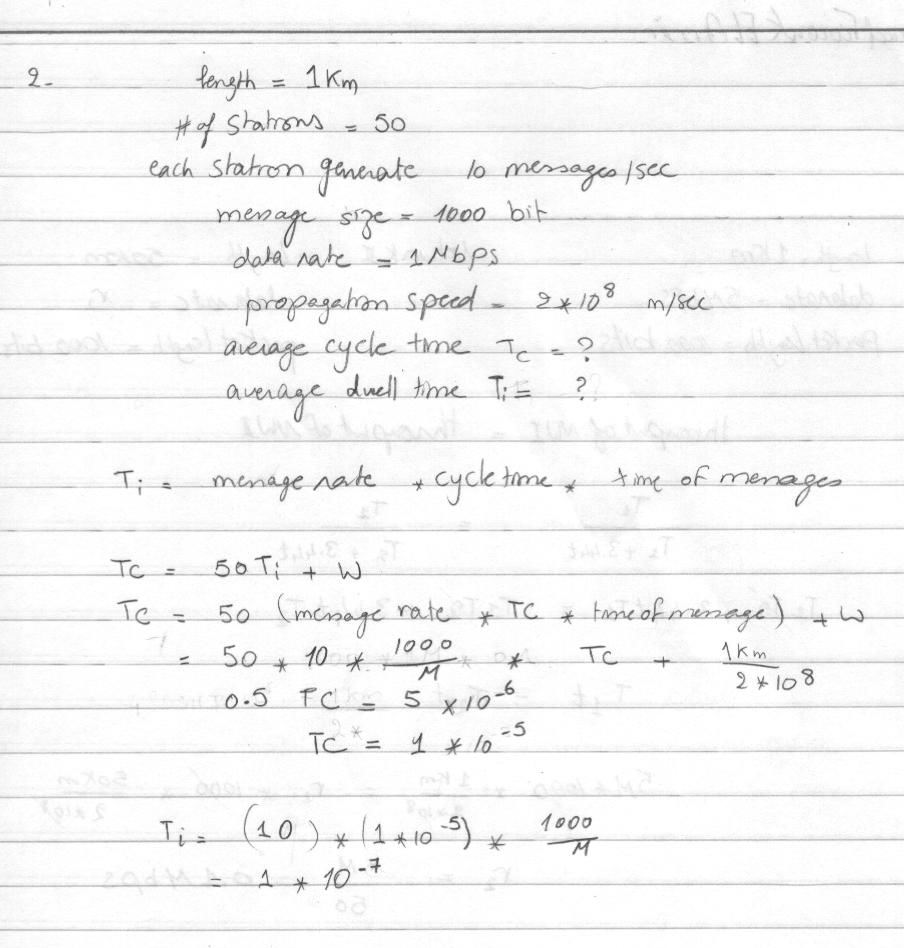 2- length = 1 Km
# of stations = 50
each station generate 10 messages/sec
message size = 1000 bit
data rate = 1 Mbps
propagation speed = 2*10^8 m/sec
average cycle time Tc = ?
average dwell time Ti = ?
Ti = message rate * cycle time * time of messages
Tc = 50 Ti + W
Tc = 50 (message rate * TC * time of message) + W
= 50 * 10 * 1000/M * Tc + 1Km/2*10^8
0.5 TC = 5 x 10^-6
TC = 1 * 10^-5
Ti = (10) * (1*10^-5) * 1000/M
= 1 * 10^-7